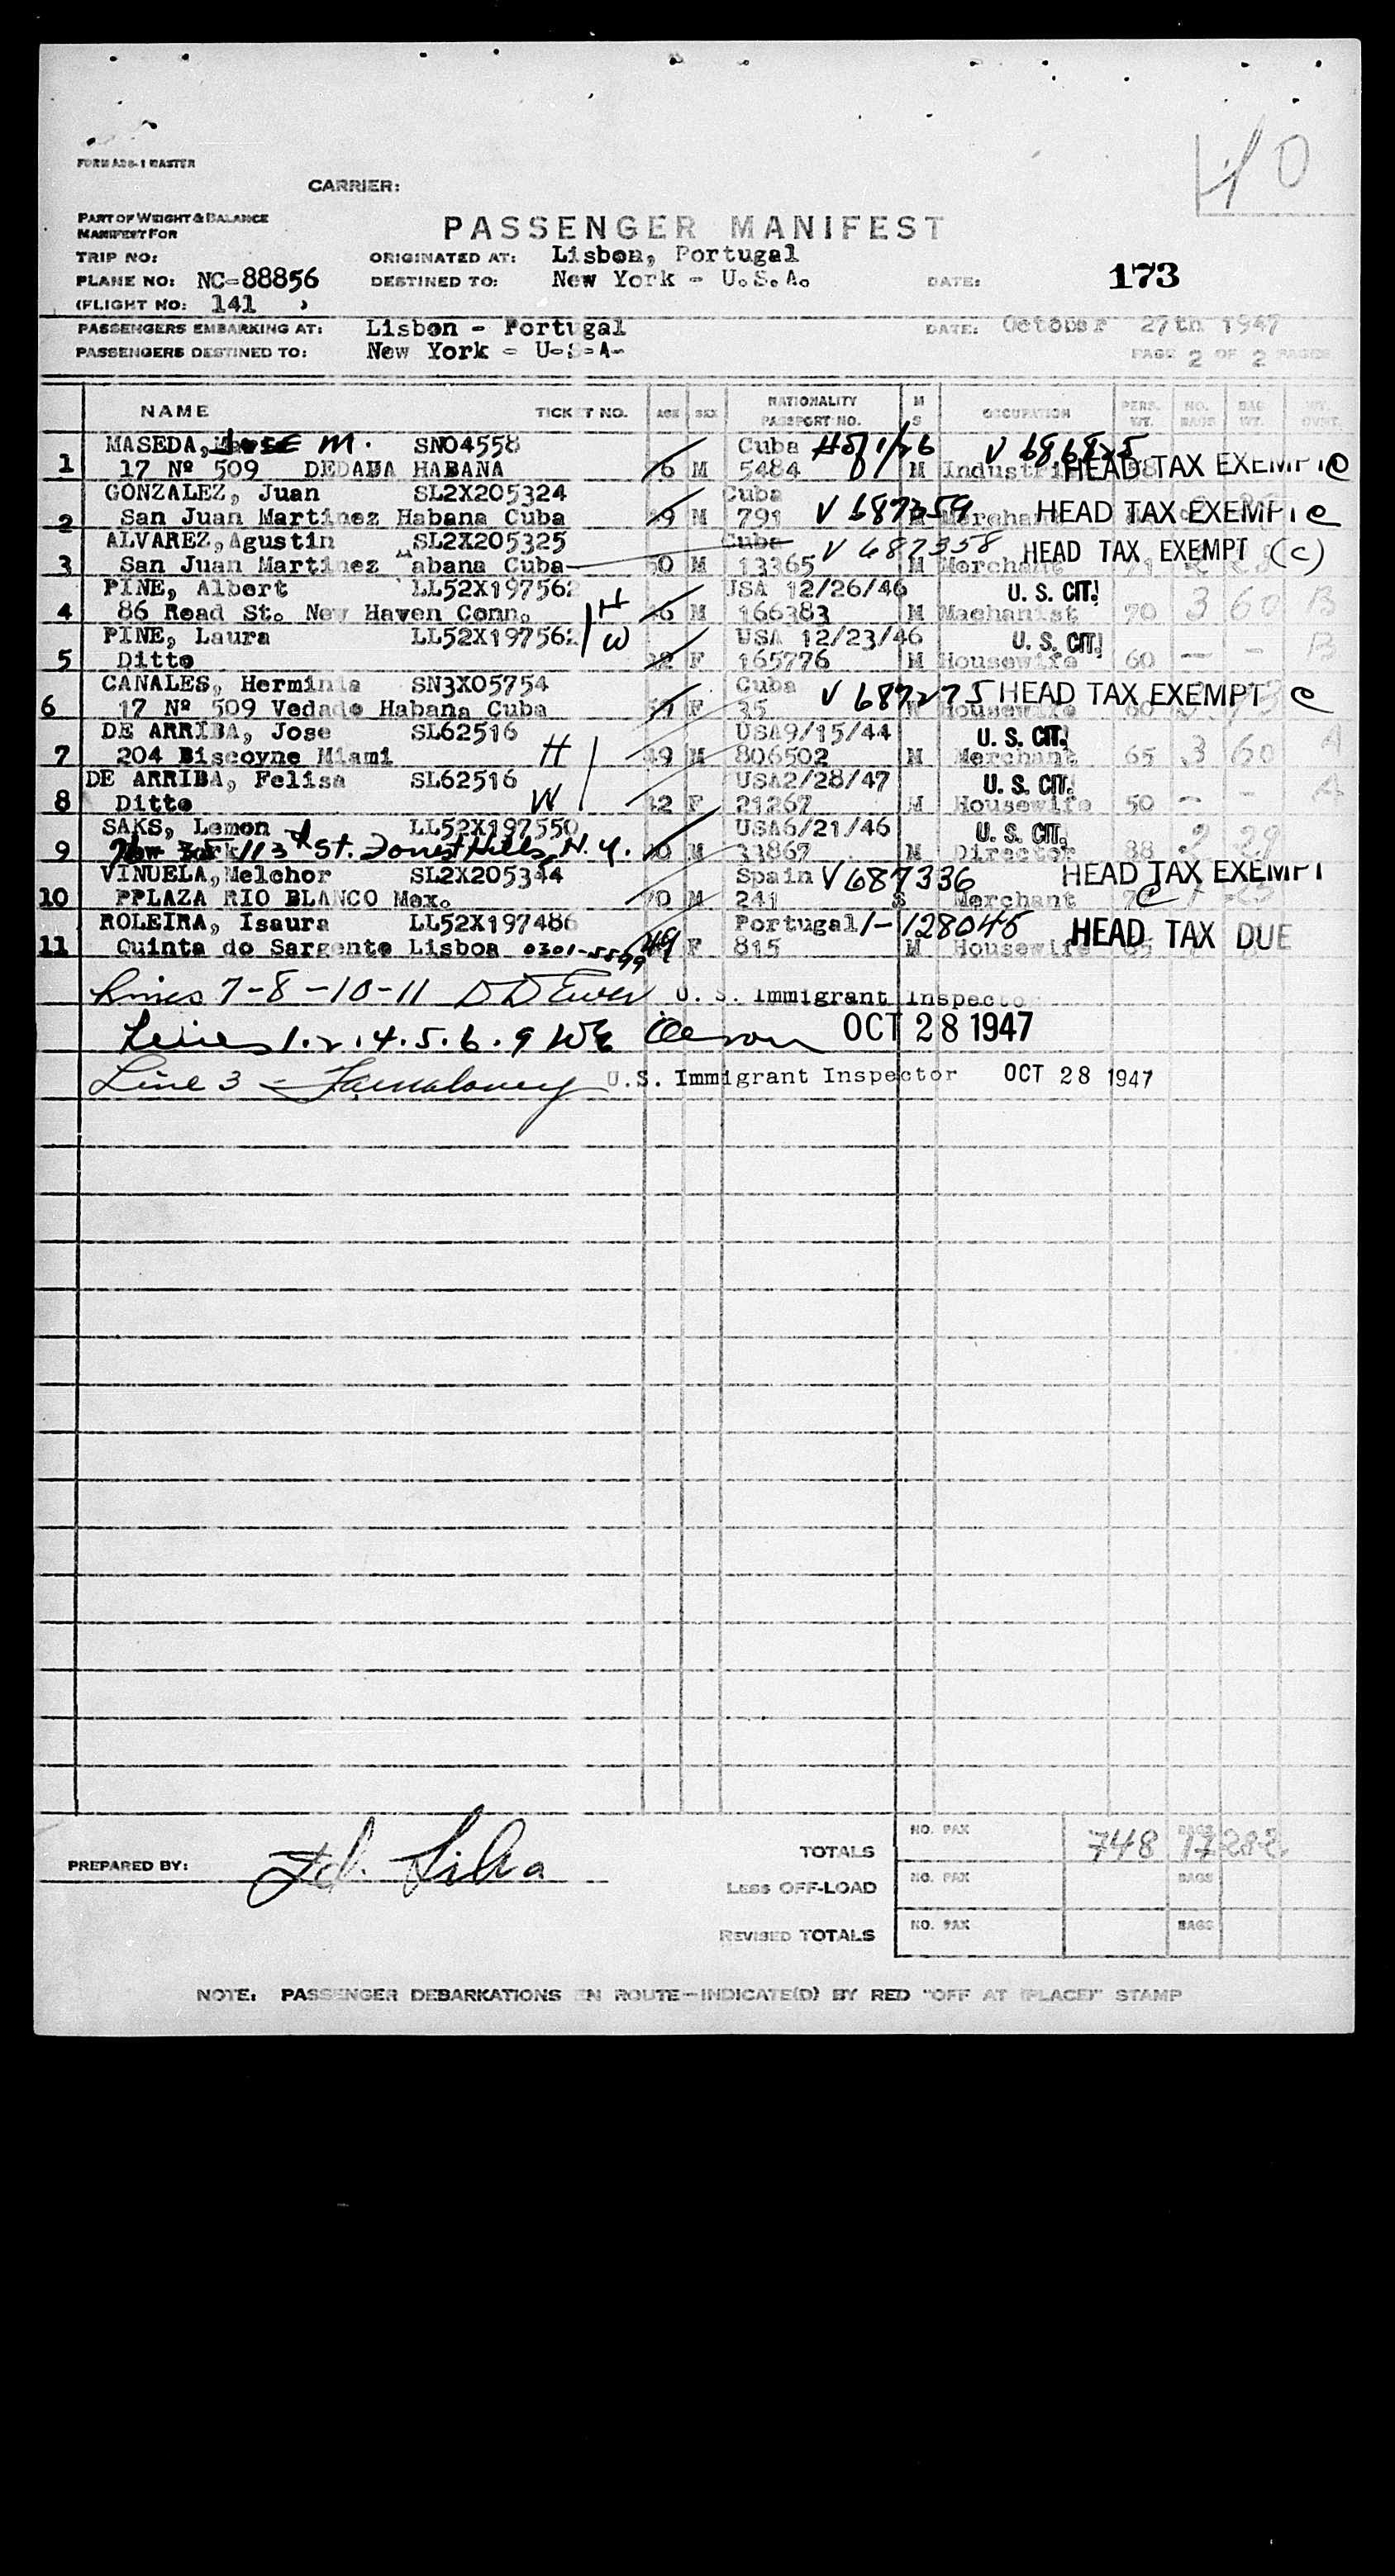 10
FORM ADS-1 MASTER
CARRIER:
PART OF WEIGHT & BALANCE
MANIFEST FOR
PASSENGER MANIFEST
TRIP NO: ORIGINATED AT: Lisbon, Portugal
PLANE NO: NC-88856 DESTINED TO: New York - U.S.A. DATE: 173
(FLIGHT NO: 141 )
PASSENGERS EMBARKING AT: Lisbon - Portugal DATE: October 27th 1947
PASSENGERS DESTINED TO: New York - U-S-A- PAGE 2 OF 2 PAGES
NAME TICKET NO. AGE SEX NATIONALITY PASSPORT NO. M S OCCUPATION PERS. WT. NO. BAGS BAG WT.
MASEDA, JOSE M. SN04558 Cuba V 686825
1 17 Nº 509 DEDADA HABANA M 5484 M HEAD TAX EXEMPT C
GONZALEZ, Juan SL2X205324 Cuba
2 San Juan Martinez Habana Cuba M 791 V 687359 Merchant HEAD TAX EXEMPT C
ALVAREZ, Agustin SL2X205325 Cuba V 687358 HEAD TAX EXEMPT (C)
3 San Juan Martinez Habana Cuba 50 M 13365 M Merchant
PINE, Albert LL52X197562 H USA 12/26/46 U. S. CIT.
4 86 Read St. New Haven Conn. M 166383 M Machanist 70 3 60 B
PINE, Laura LL52X197562 W USA 12/23/46 U. S. CIT.
5 Ditto F 165776 M Housewife 60 - - B
CANALES, Herminia SN3X05754 Cuba V 687275 HEAD TAX EXEMPT C
6 17 Nº 509 Vedado Habana Cuba F 35 Housewife
DE ARRIBA, Jose SL62516 USA9/15/44 U. S. CIT.
7 204 Biscoyne Miami H 49 M 806502 M Merchant 65 3 60 A
DE ARRIBA, Felisa SL62516 USA2/28/47 U. S. CIT.
8 Ditto W 42 F 21267 M Housewife 50 - - A
SAKS, Lemon LL52X197550 USA6/21/46 U. S. CIT.
9 New York 113 St. Forest Hills, N.Y. M 33867 M Director 88 2 29
VINUELA, Melchor SL2X205344 Spain V 687336 HEAD TAX EXEMPT
10 PPLAZA RIO BLANCO Mex. 70 M 241 S Merchant C
ROLEIRA, Isaura LL52X197486 Portugal 1-128045 HEAD TAX DUE
11 Quinta do Sargente Lisboa 0301-5599 49 F 815 M Housewife
Lines 7-8-10-11 U. S. Immigrant Inspector
Lines 1.2.4.5.6.9 OCT 28 1947
Line 3 - U.S. Immigrant Inspector OCT 28 1947
NO. PAX BAGS
TOTALS 748 17 282
PREPARED BY: Silva
NO. PAX BAGS
LESS OFF-LOAD
NO. PAX BAGS
REVISED TOTALS
NOTE: PASSENGER DEBARKATIONS EN ROUTE-INDICATE(D) BY RED "OFF AT (PLACE)" STAMP